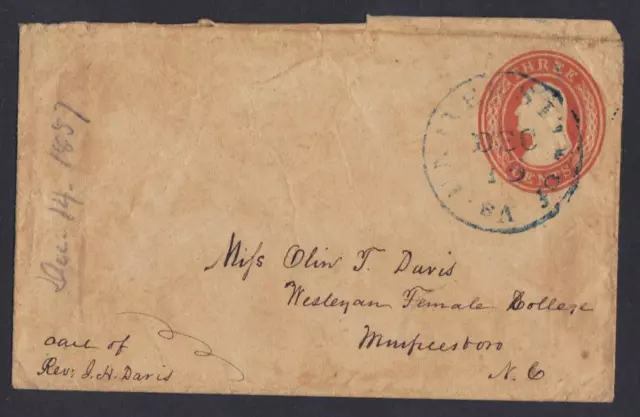 THREE
CENTS
DEC
Va.
Dec. 14. 1857
Miss Olin T. Davis
Wesleyan Female College
Murfreesboro
N. C
care of
Rev: J. H. Davis